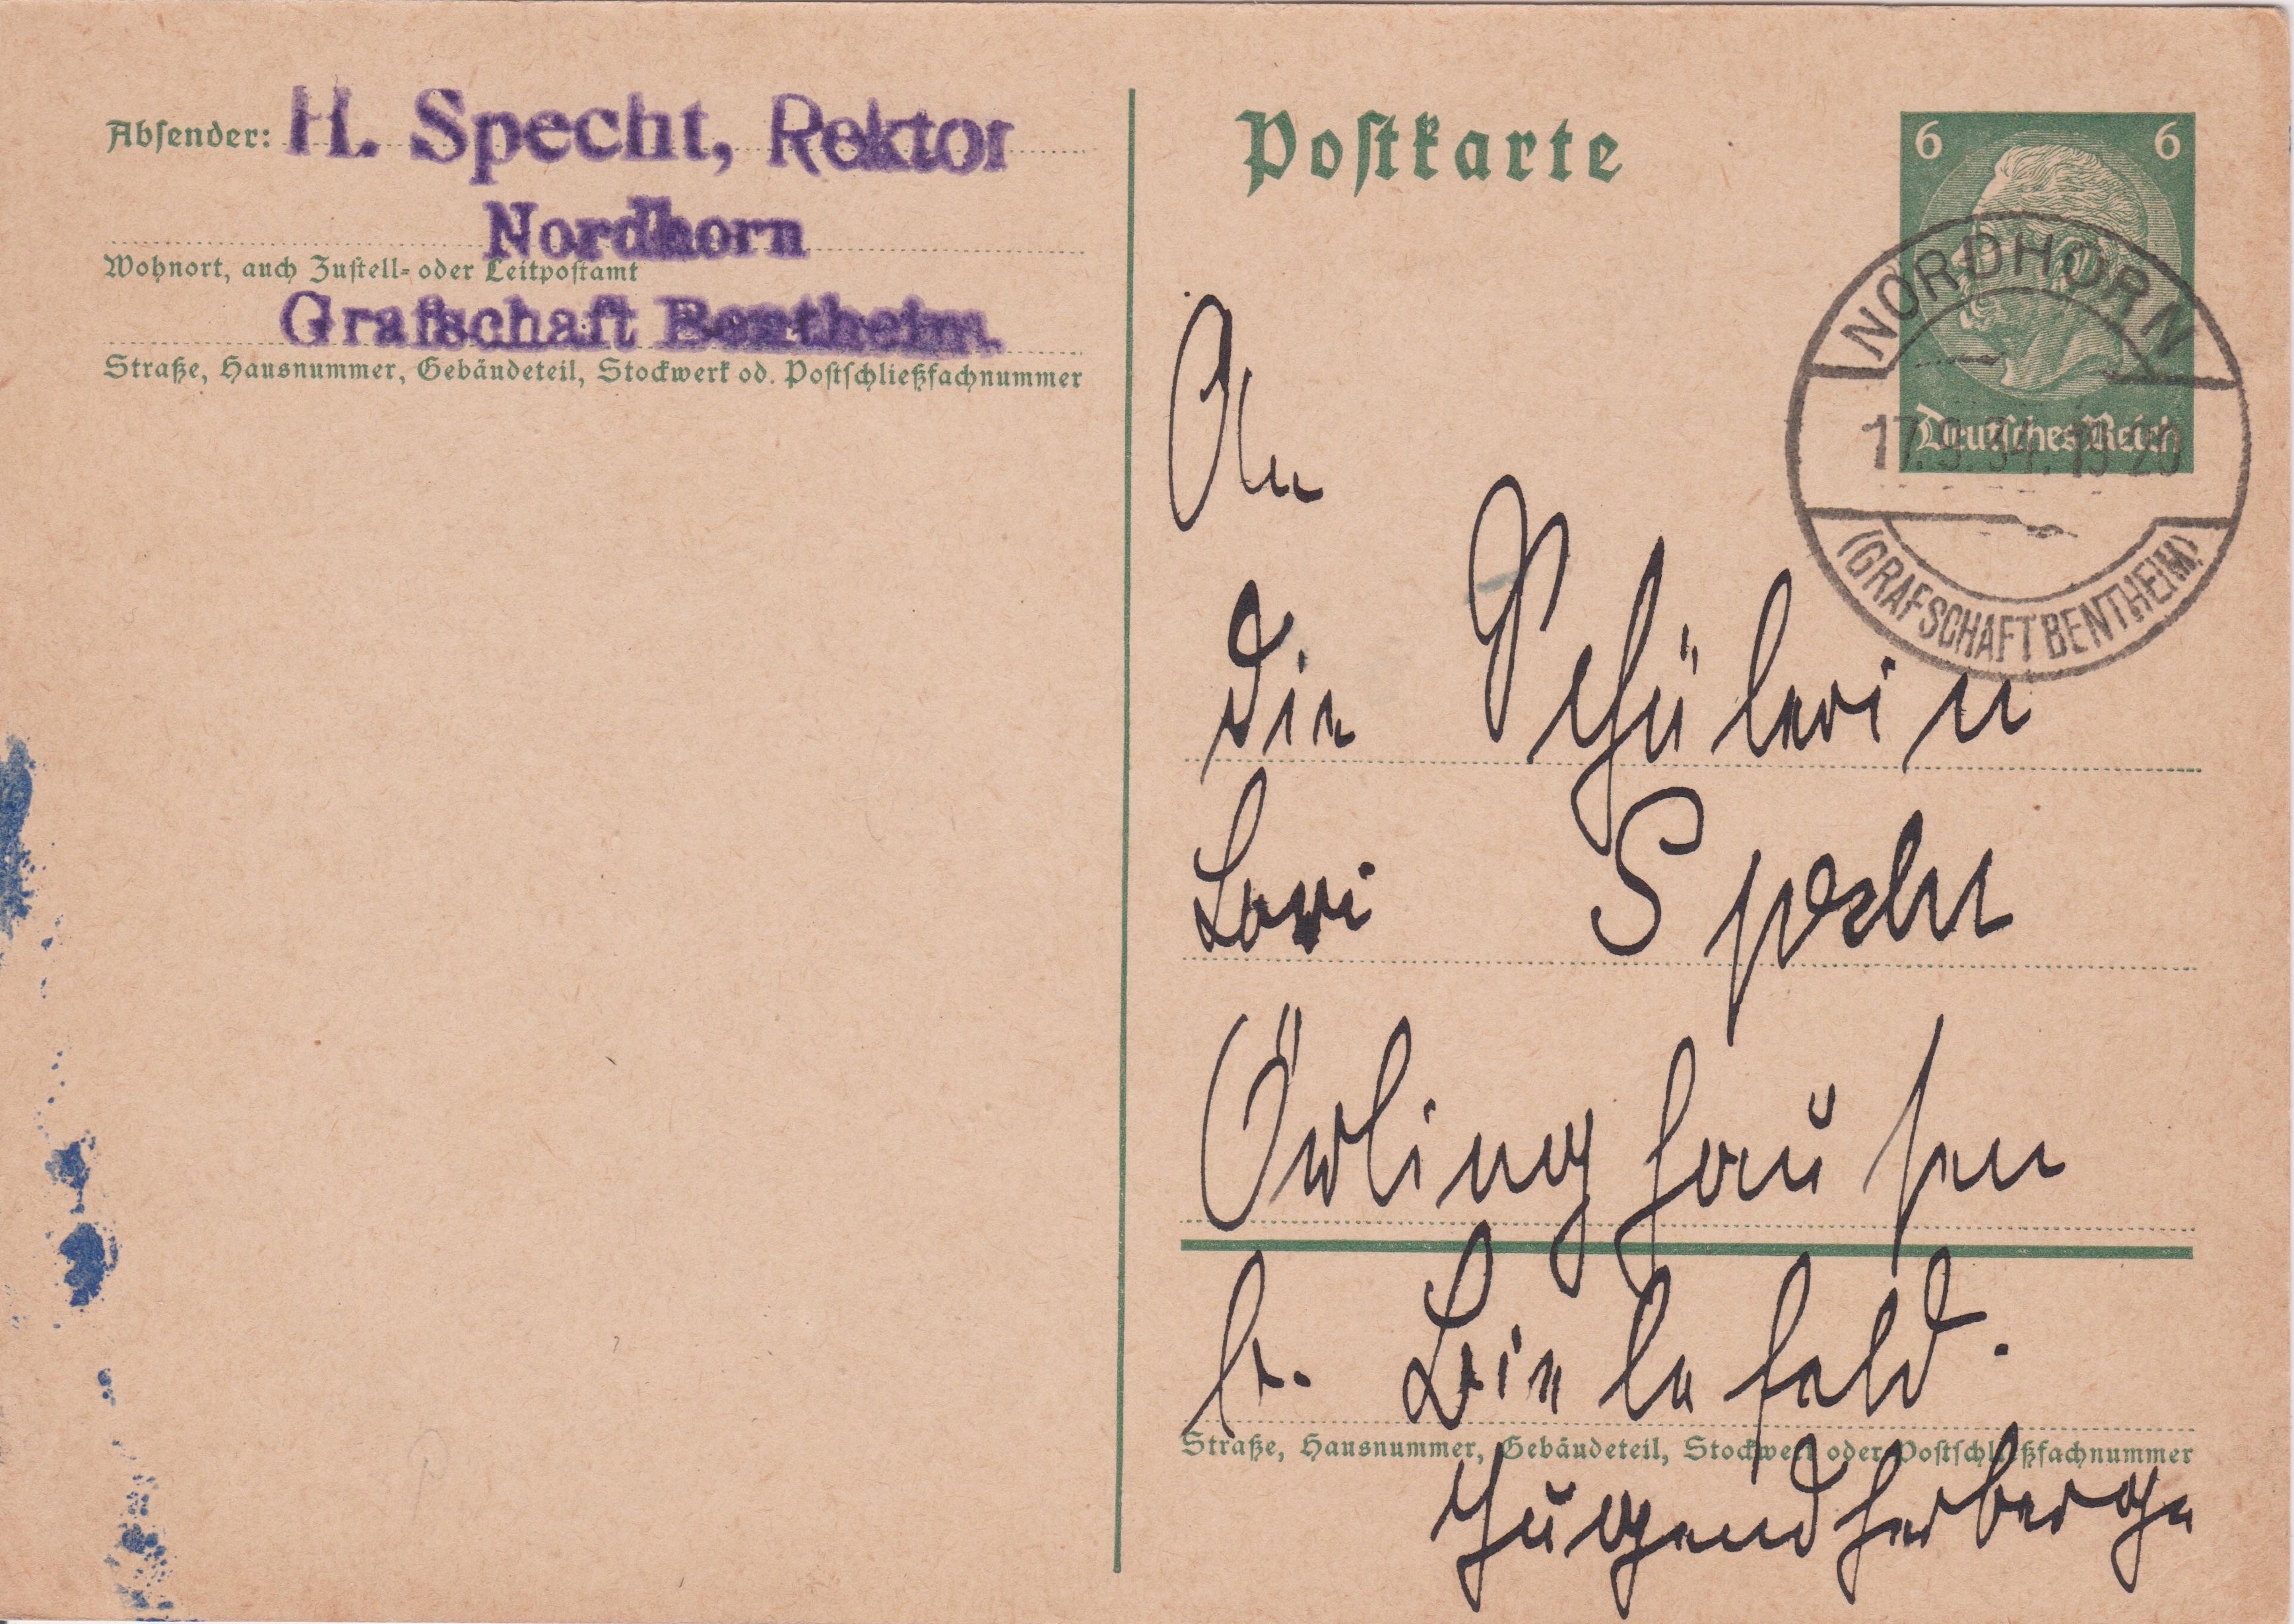 Absender: H. Specht, Rektor
Nordhorn
Wohnort, auch Zustell- oder Leitpostamt
Grafschaft Bentheim.
Straße, Hausnummer, Gebäudeteil, Stockwerk od. Postschließfachnummer
Postkarte
6 6
Deutsches Reich
NORDHORN
17.9.34. 19-20
(GRAFSCHAFT BENTHEIM)
An
die Schülerin
Lori Specht
Örlinghausen
b. Bielefeld.
Straße, Hausnummer, Gebäudeteil, Stockwerk oder Postschließfachnummer
Jugendherberge